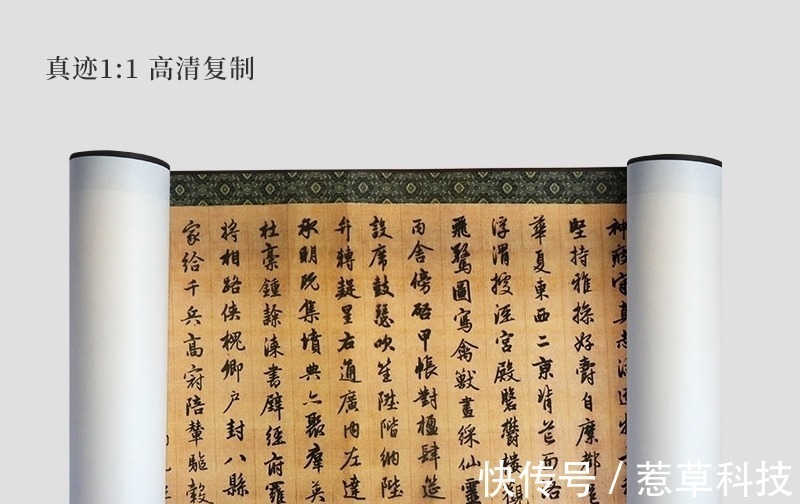 真迹1:1 高清复制
神疲守真志滿逐物
堅持雅操好爵自縻都
華夏東西二京背芒面洛
浮渭據涇宮殿盤鬱樓
飛驚圖寫禽獸畫綵仙靈
丙舍傍啓甲帳對楹肆筵
設席鼓瑟吹笙陞階納陛
弁轉疑星右通廣內左達
承明既集墳典亦聚羣英
杜稾鍾隸漆書壁經府羅
將相路俠槐卿戶封八縣
家給千兵高冠陪輦驅轂
快传号 / 惹草科技